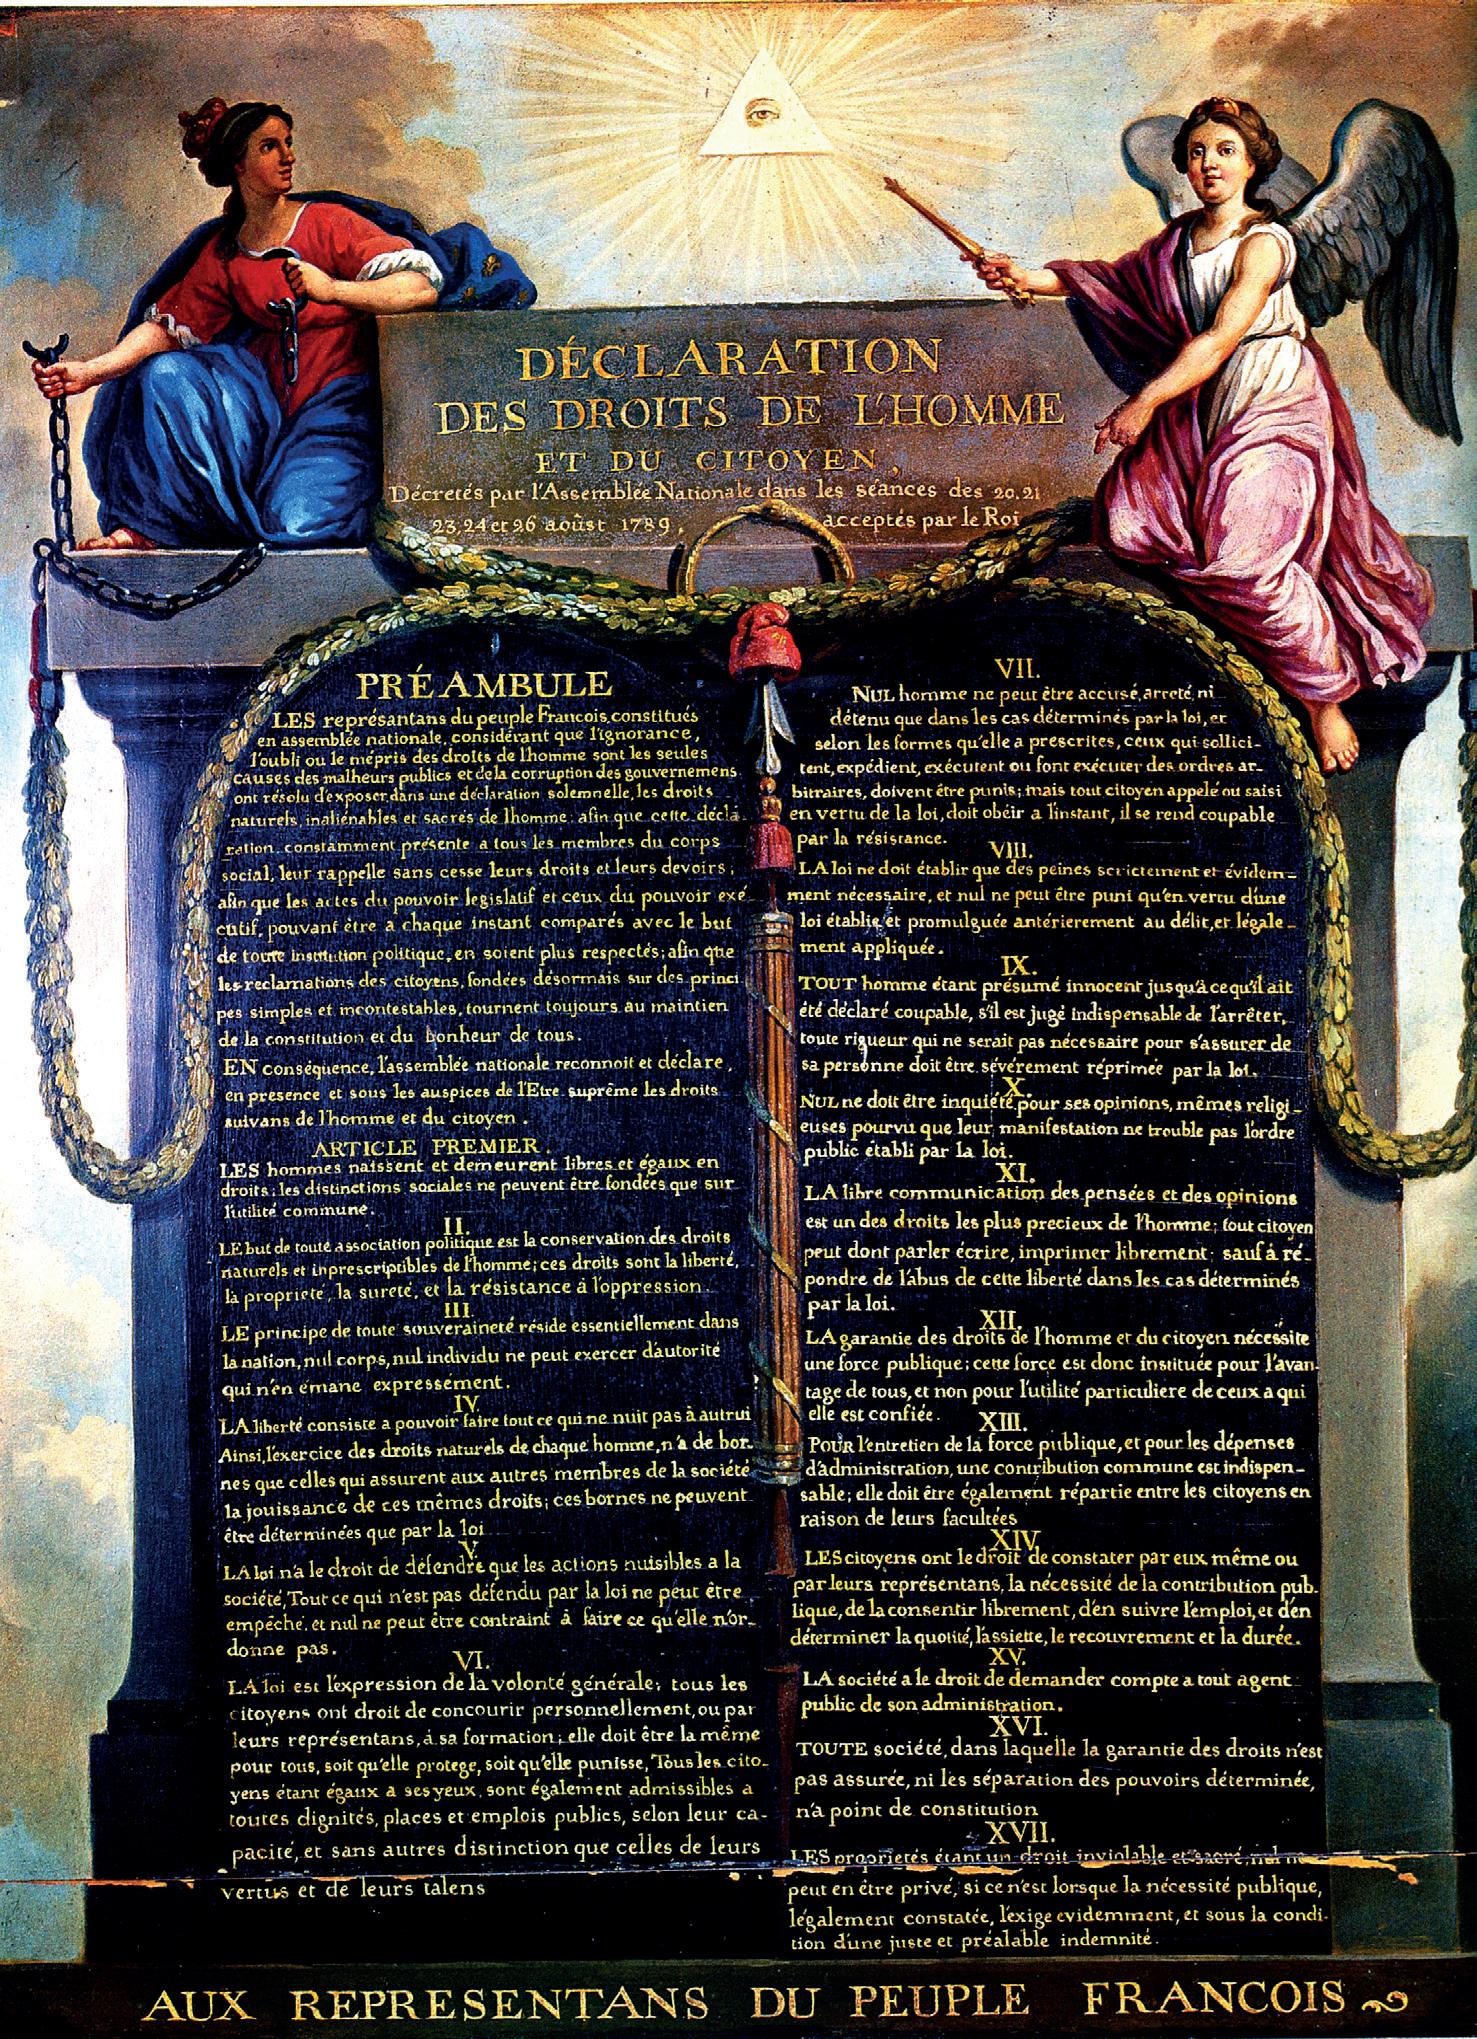 DÉCLARATION
DES DROITS DE L'HOMME
ET DU CITOYEN,
Décretés par l'Assemblée Nationale dans les séances des 20.21
23,24 et 26 août 1789, acceptés par le Roi
PRÉAMBULE
LES représantans du peuple Francois, constitués
en assemblée nationale, considérant que l'ignorance,
l'oubli ou le mépris des droits de l'homme sont les seules
causes des malheurs publics et de la corruption des gouvernemens
ont résolu d'exposer, dans une déclaration solemnelle, les droits
naturels, inaliénables et sacrés de l'homme; afin que cette décla-
ration, constamment présente a tous les membres du corps
social, leur rappelle sans cesse leurs droits et leurs devoirs;
afin que les actes du pouvoir legislatif et ceux du pouvoir exé-
cutif, pouvant être a chaque instant comparés avec le but
de toute institution politique, en soient plus respectés; afin que
les reclamations des citoyens, fondées désormais sur des princi
pes simples et incontestables, tournent toujours au maintien
de la constitution et du bonheur de tous.
EN conséquence, l'assemblée nationale reconnoit et déclare,
en presence et sous les auspices de l'Etre suprême les droits
suivans de l'homme et du citoyen.
ARTICLE PREMIER.
LES hommes naissent et demeurent libres et égaux en
droits; les distinctions sociales ne peuvent être fondées que sur
l'utilité commune.
II.
LE but de toute association politique est la conservation des droits
naturels et inprescriptibles de l'homme; ces droits sont la liberté,
la propriete, la sureté, et la résistance à l'oppression.
III.
LE principe de toute souveraineté réside essentiellement dans
la nation, nul corps, nul individu ne peut exercer d'autorité
qui n'en emane expressément.
IV.
LA liberté consiste a pouvoir faire tout ce qui ne nuit pas à autrui
Ainsi, l'exercice des droits naturels de chaque homme, n'a de bor-
nes que celles qui assurent aux autres membres de la société
la jouissance de ces mêmes droits; ces bornes ne peuvent
être déterminées que par la loi
V.
LA loi n'a le droit de défendre que les actions nuisibles a la
société, Tout ce qui n'est pas défendu par la loi ne peut être
empêché, et nul ne peut être contraint à faire ce qu'elle n'or-
donne pas.
VI.
LA loi est l'expression de la volonté générale; tous les
citoyens ont droit de concourir personnellement, ou par
leurs représentans, à sa formation; elle doit être la même
pour tous, soit qu'elle protege, soit qu'elle punisse, Tous les cito-
yens étant égaux a ses yeux, sont également admissibles a
toutes dignités, places et emplois publics, selon leur ca-
pacité, et sans autres distinction que celles de leurs
vertus et de leurs talens
VII.
NUL homme ne peut être accusé, arreté, ni
détenu que dans les cas déterminés par la loi, et
selon les formes qu'elle a prescrites, ceux qui sollici-
tent, expédient, exécutent ou font exécuter des ordres ar-
bitraires, doivent être punis; mais tout citoyen appelé ou saisi
en vertu de la loi, doit obéir a l'instant, il se rend coupable
par la résistance.
VIII.
LA loi ne doit établir que des peines strictement et évidem-
ment nécessaire, et nul ne peut être puni qu'en vertu d'une
loi établie et promulguée antérierement au délit, et légale-
ment appliquée.
IX.
TOUT homme étant présumé innocent jusqu'a ce qu'il ait
été déclaré coupable, s'il est jugé indispensable de l'arrêter,
toute rigueur qui ne serait pas nécessaire pour s'assurer de
sa personne doit être sévèrement réprimée par la loi.
X.
NUL ne doit être inquiété pour ses opinions, mêmes religi-
euses pourvu que leur manifestation ne trouble pas l'ordre
public établi par la loi.
XI.
LA libre communication des pensées et des opinions
est un des droits les plus precieux de l'homme; tout citoyen
peut dont parler écrire, imprimer librement; sauf à ré-
pondre de l'abus de cette liberté dans les cas déterminés
par la loi.
XII.
LA garantie des droits de l'homme et du citoyen nécessite
une force publique; cette force est donc instituée pour l'avan-
tage de tous, et non pour l'utilité particuliere de ceux a qui
elle est confiée.
XIII.
POUR l'entretien de la force publique, et pour les dépenses
d'administration, une contribution commune est indispen-
sable; elle doit être également répartie entre les citoyens en
raison de leurs facultées
XIV.
LES citoyens ont le droit de constater par eux même ou
par leurs représentans, la nécessité de la contribution pub-
lique, de la consentir librement, d'en suivre l'emploi, et d'en
déterminer la quotité, l'assiette, le recouvrement et la durée.
XV.
LA société a le droit de demander compte a tout agent
public de son administration.
XVI.
TOUTE société, dans laquelle la garantie des droits n'est
pas assurée, ni les séparation des pouvoirs déterminée,
n'a point de constitution
XVII.
LES proprietés étant un droit inviolable et sacré, nul ne
peut en être privé, si ce n'est lorsque la nécessité publique,
légalement constatée, l'exige evidemment, et sous la condi-
tion d'une juste et préalable indemnité.
AUX REPRESENTANS DU PEUPLE FRANCOIS